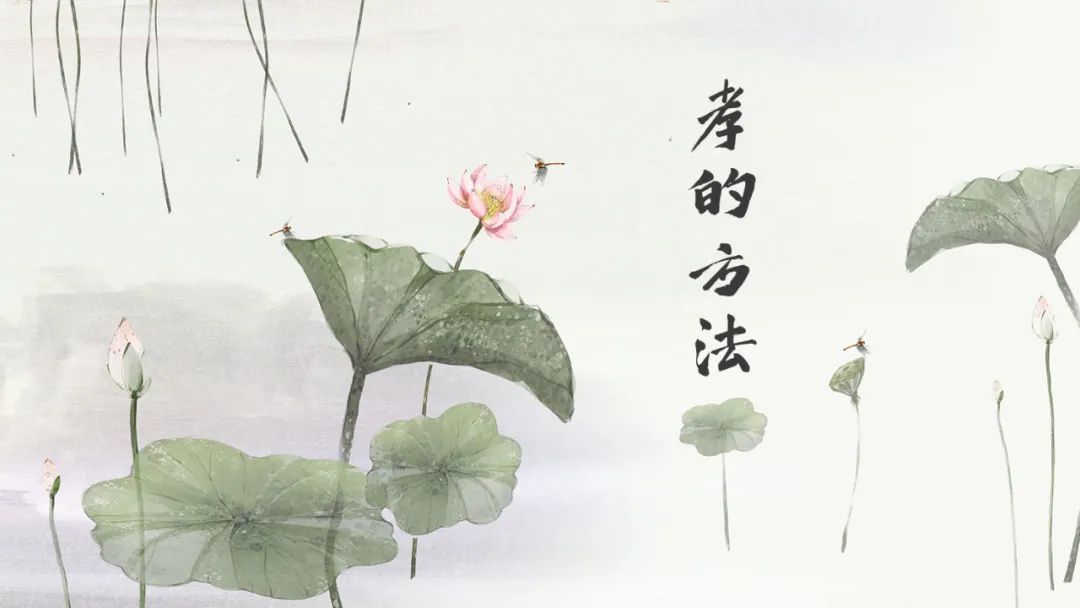 孝的方法